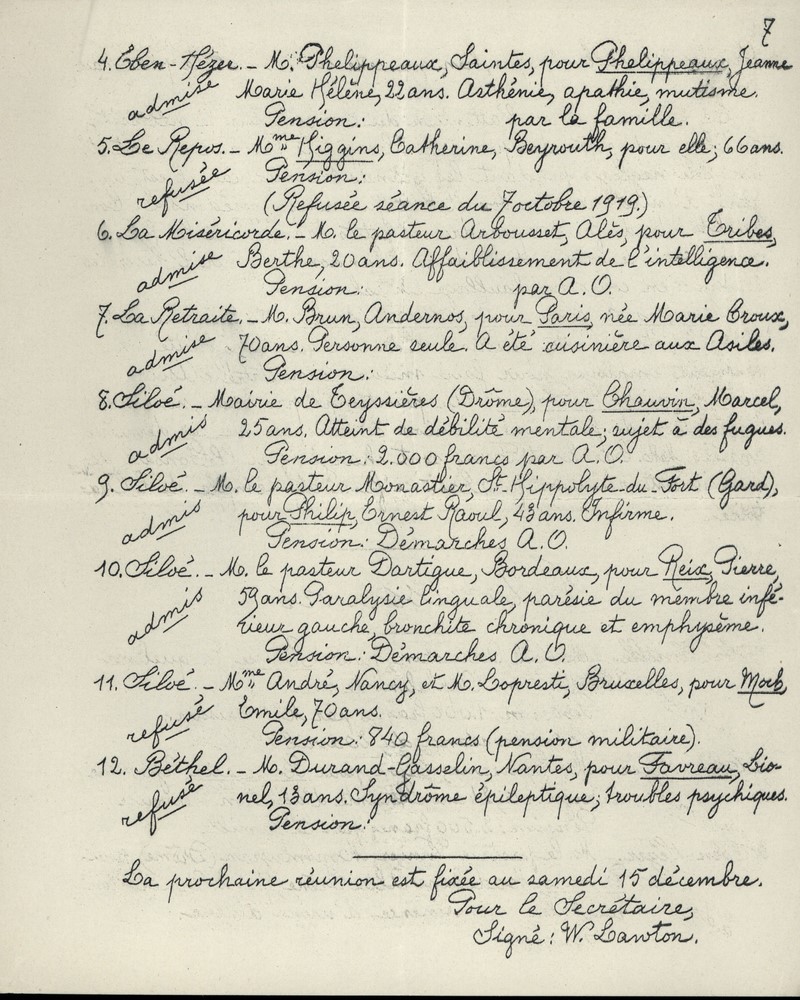 7
4. Eben-Hézer. - M. Phelippeaux, Saintes, pour Phelippeaux, Jeanne
admise Marie Hélène, 22 ans. Asthénie, apathie, mutisme.
Pension: par la famille.
5. Le Repos. - Mme Higgins, Catherine, Beyrouth, pour elle; 66 ans.
refusée Pension:
(Refusée séance du 7 octobre 1919.)
6. La Miséricorde. - M. le pasteur Arbousset, Alès, pour Tribes,
admise Berthe, 20 ans. Affaiblissement de l'intelligence.
Pension: par A. O.
7. La Retraite. - M. Brun, Andernos, pour Paris, née Marie Croux,
admise 70 ans. Personne seule. A été cuisinière aux Asiles.
Pension:
8. Siloé. - Mairie de Teyssières (Drôme), pour Chauvin, Marcel,
admis 25 ans. Atteint de débilité mentale; sujet à des fugues.
Pension: 2.000 francs par A. O.
9. Siloé. - M. le pasteur Monastier, St-Hippolyte-du-Fort (Gard),
admis pour Philip, Ernest Raoul, 43 ans. Infirme.
Pension: Démarches A. O.
10. Siloé. - M. le pasteur Dartigue, Bordeaux, pour Reix, Pierre,
admis 59 ans. Paralysie linguale, parésie du membre infé-
rieur gauche, bronchite chronique et emphysème.
Pension: Démarches A. O.
11. Siloé. - Mme André, Nancy, et M. Lopresti, Bruxelles, pour
refusé Emile, 70 ans.
Pension: 840 francs (pension militaire).
12. Béthel. - M. Durand-Gasselin, Nantes, pour Favreau, Lio-
refusé nel, 13 ans. Syndrôme épileptique; troubles psychiques.
Pension:
La prochaine réunion est fixée au samedi 15 décembre.
Pour le Secrétaire,
Signé: W. Lawton.